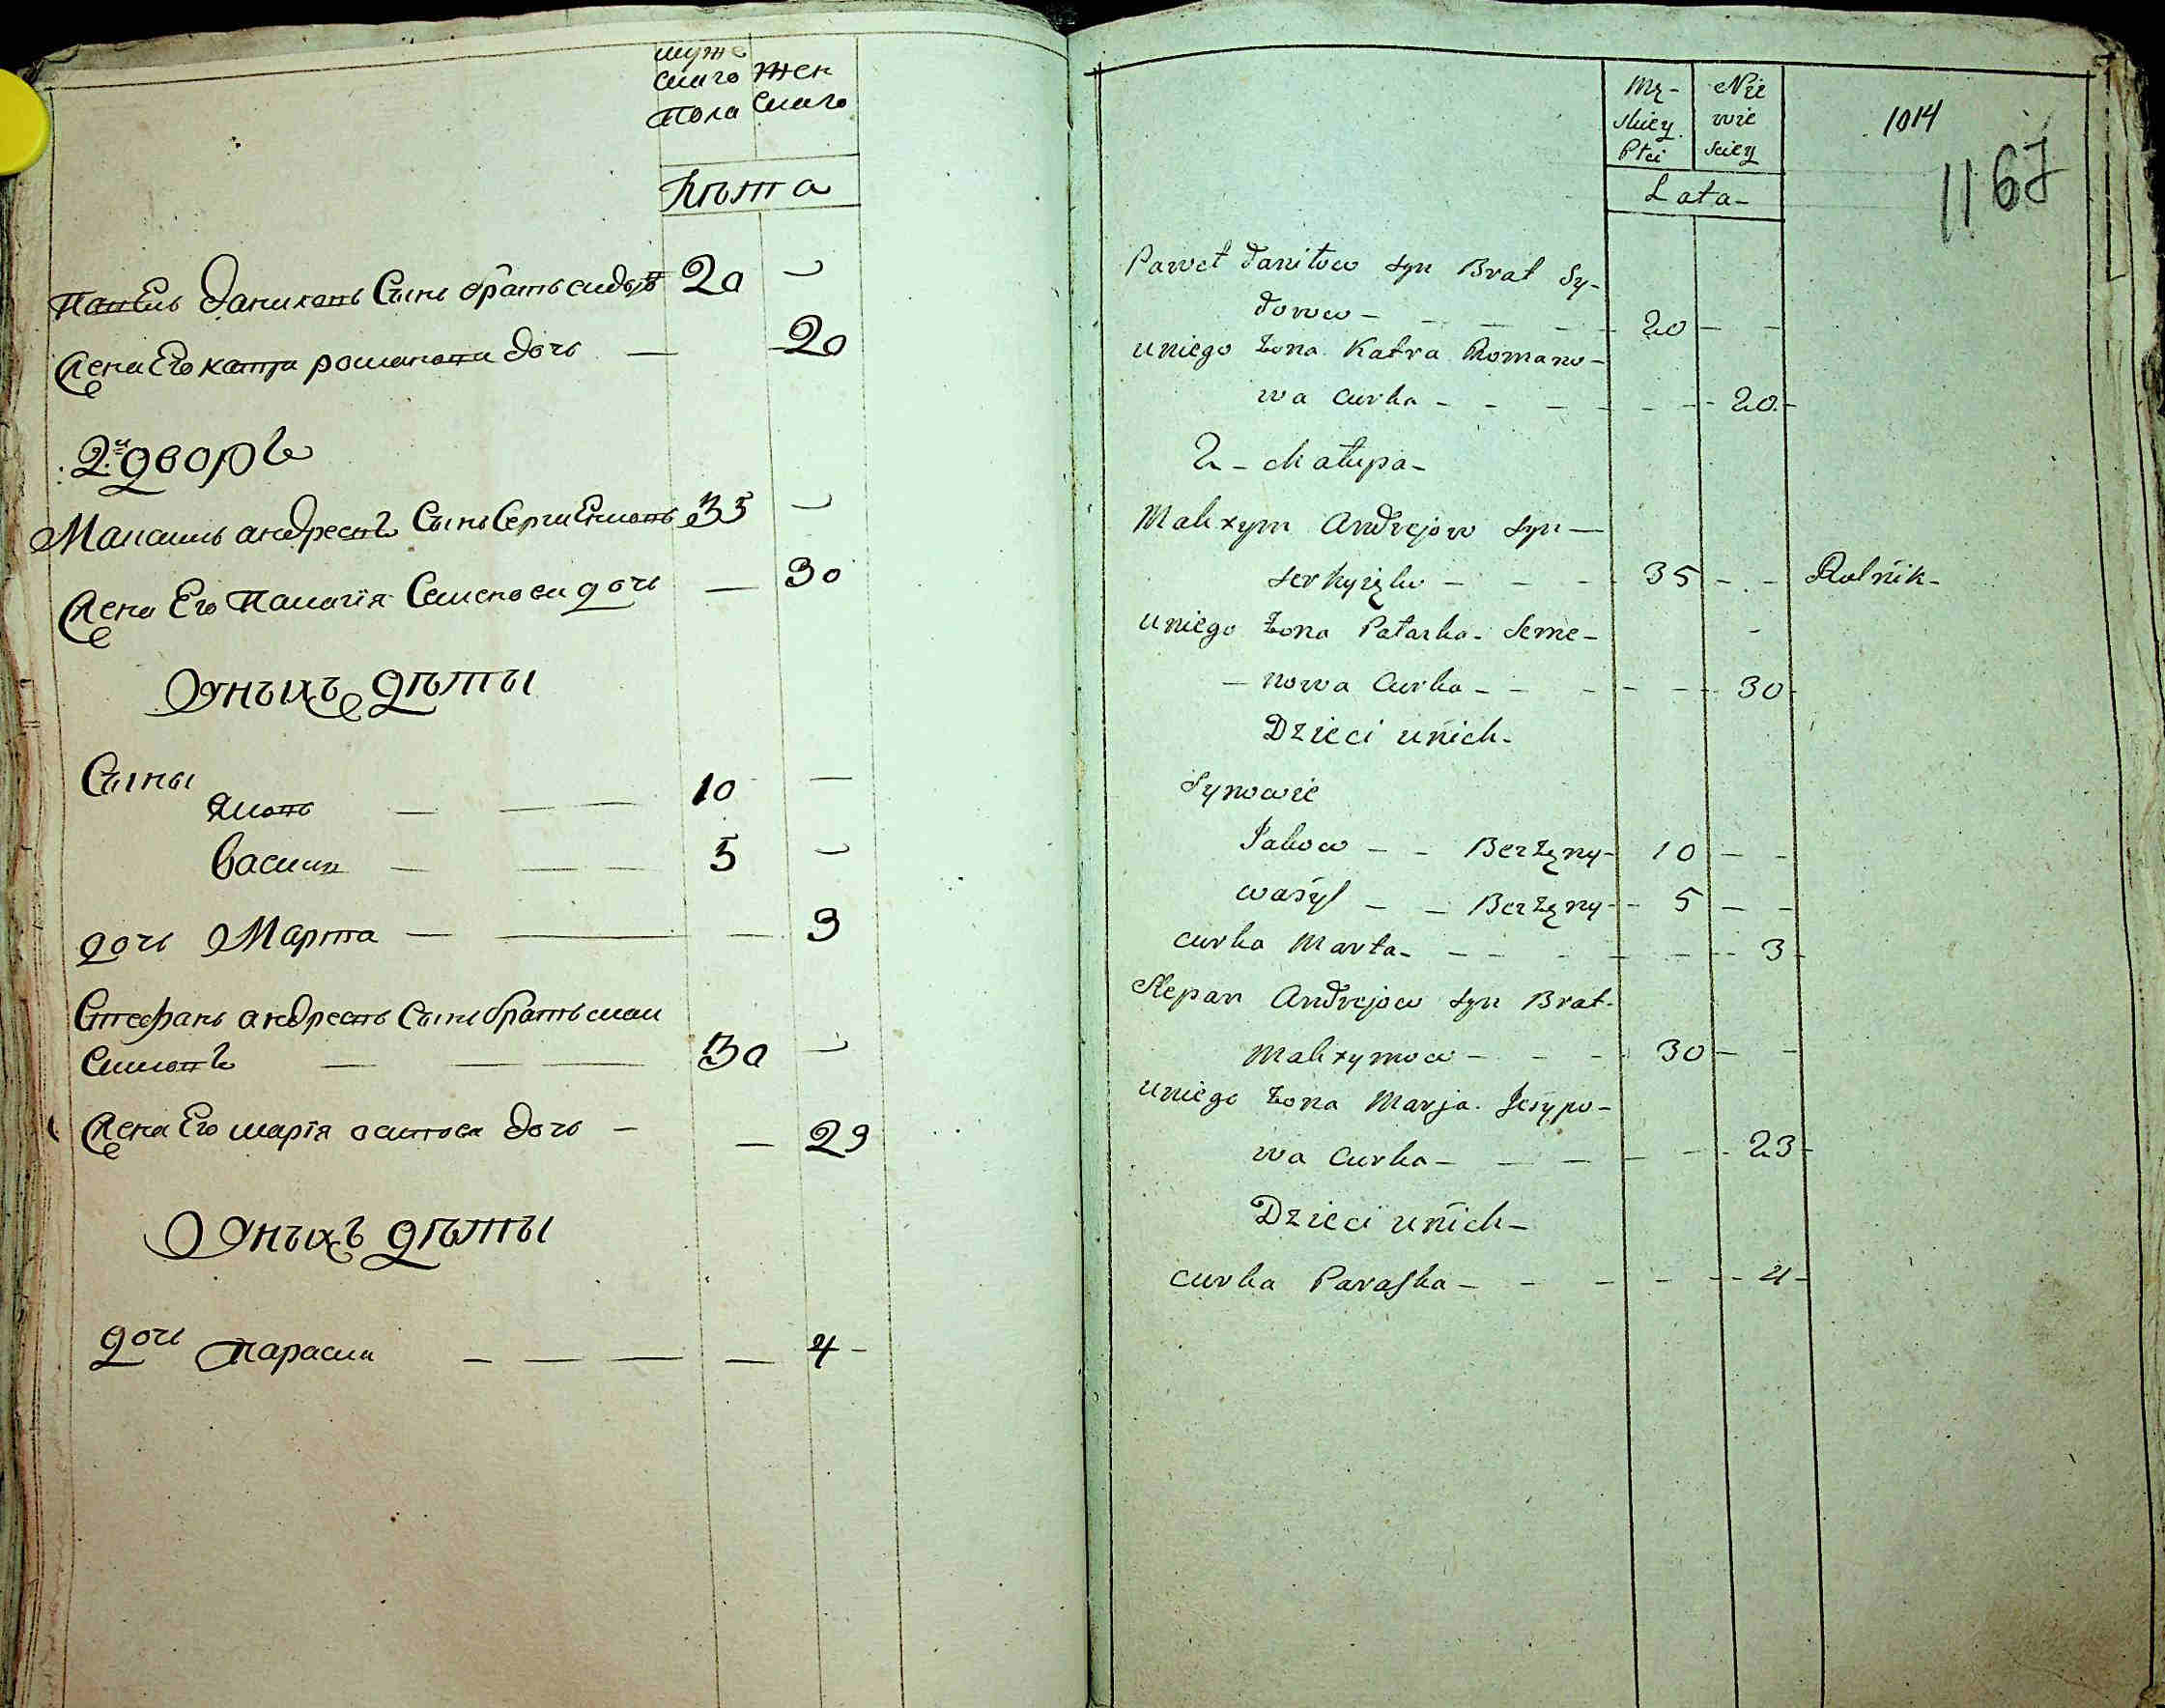 муже
скаго
пола
жен
скаго
лѣта
Павелъ даниловъ Сынъ братъ сидо 20
Жена Его катра романова дочь — 20
2й дворъ
Максимъ андреевъ Сынъ Сергиенковъ 35
Жена Его Палагія Семенова дочь — 30
У ныхъ дѣты
Сыны
яковъ — — — 10 —
васили — — — 5
дочь Марта — — — 3
Стефанъ андреевъ Сынъ братъ мак
симовъ — — — 30
Жена Его марія осипова дочь — — 29
У ныхъ дѣты
дочь Параска — — — — 4 -
Mę-
skiey
Płci
Nie
wie
sciey
1014
1167
Lata-
Paweł Daniłow syn Brat Sy-
dorow - - - - 20 - -
uniego Żona Katra Romano-
wa curka - - - - - 20 -
2 - Chałupa -
Makxym Andrejow syn —
Serhyięko - - - 35 - - Rolnik -
uniego Żona Pałazka - Seme-
- nowa Curka - - - - - 30 -
Dzieci unich -
Synowie
Jakow - - Berżęny - 10 - -
wasyl - - Berżęny - - 5 - -
curka Marta - - - - - - - 3 -
Stepan Andrejow syn Brat -
Makxymow - - - 30 - -
uniego Żona Marja Jesypo-
wa Curka - - - - - 23 -
Dzieci unich -
curka Paraska - - - - - 4 -